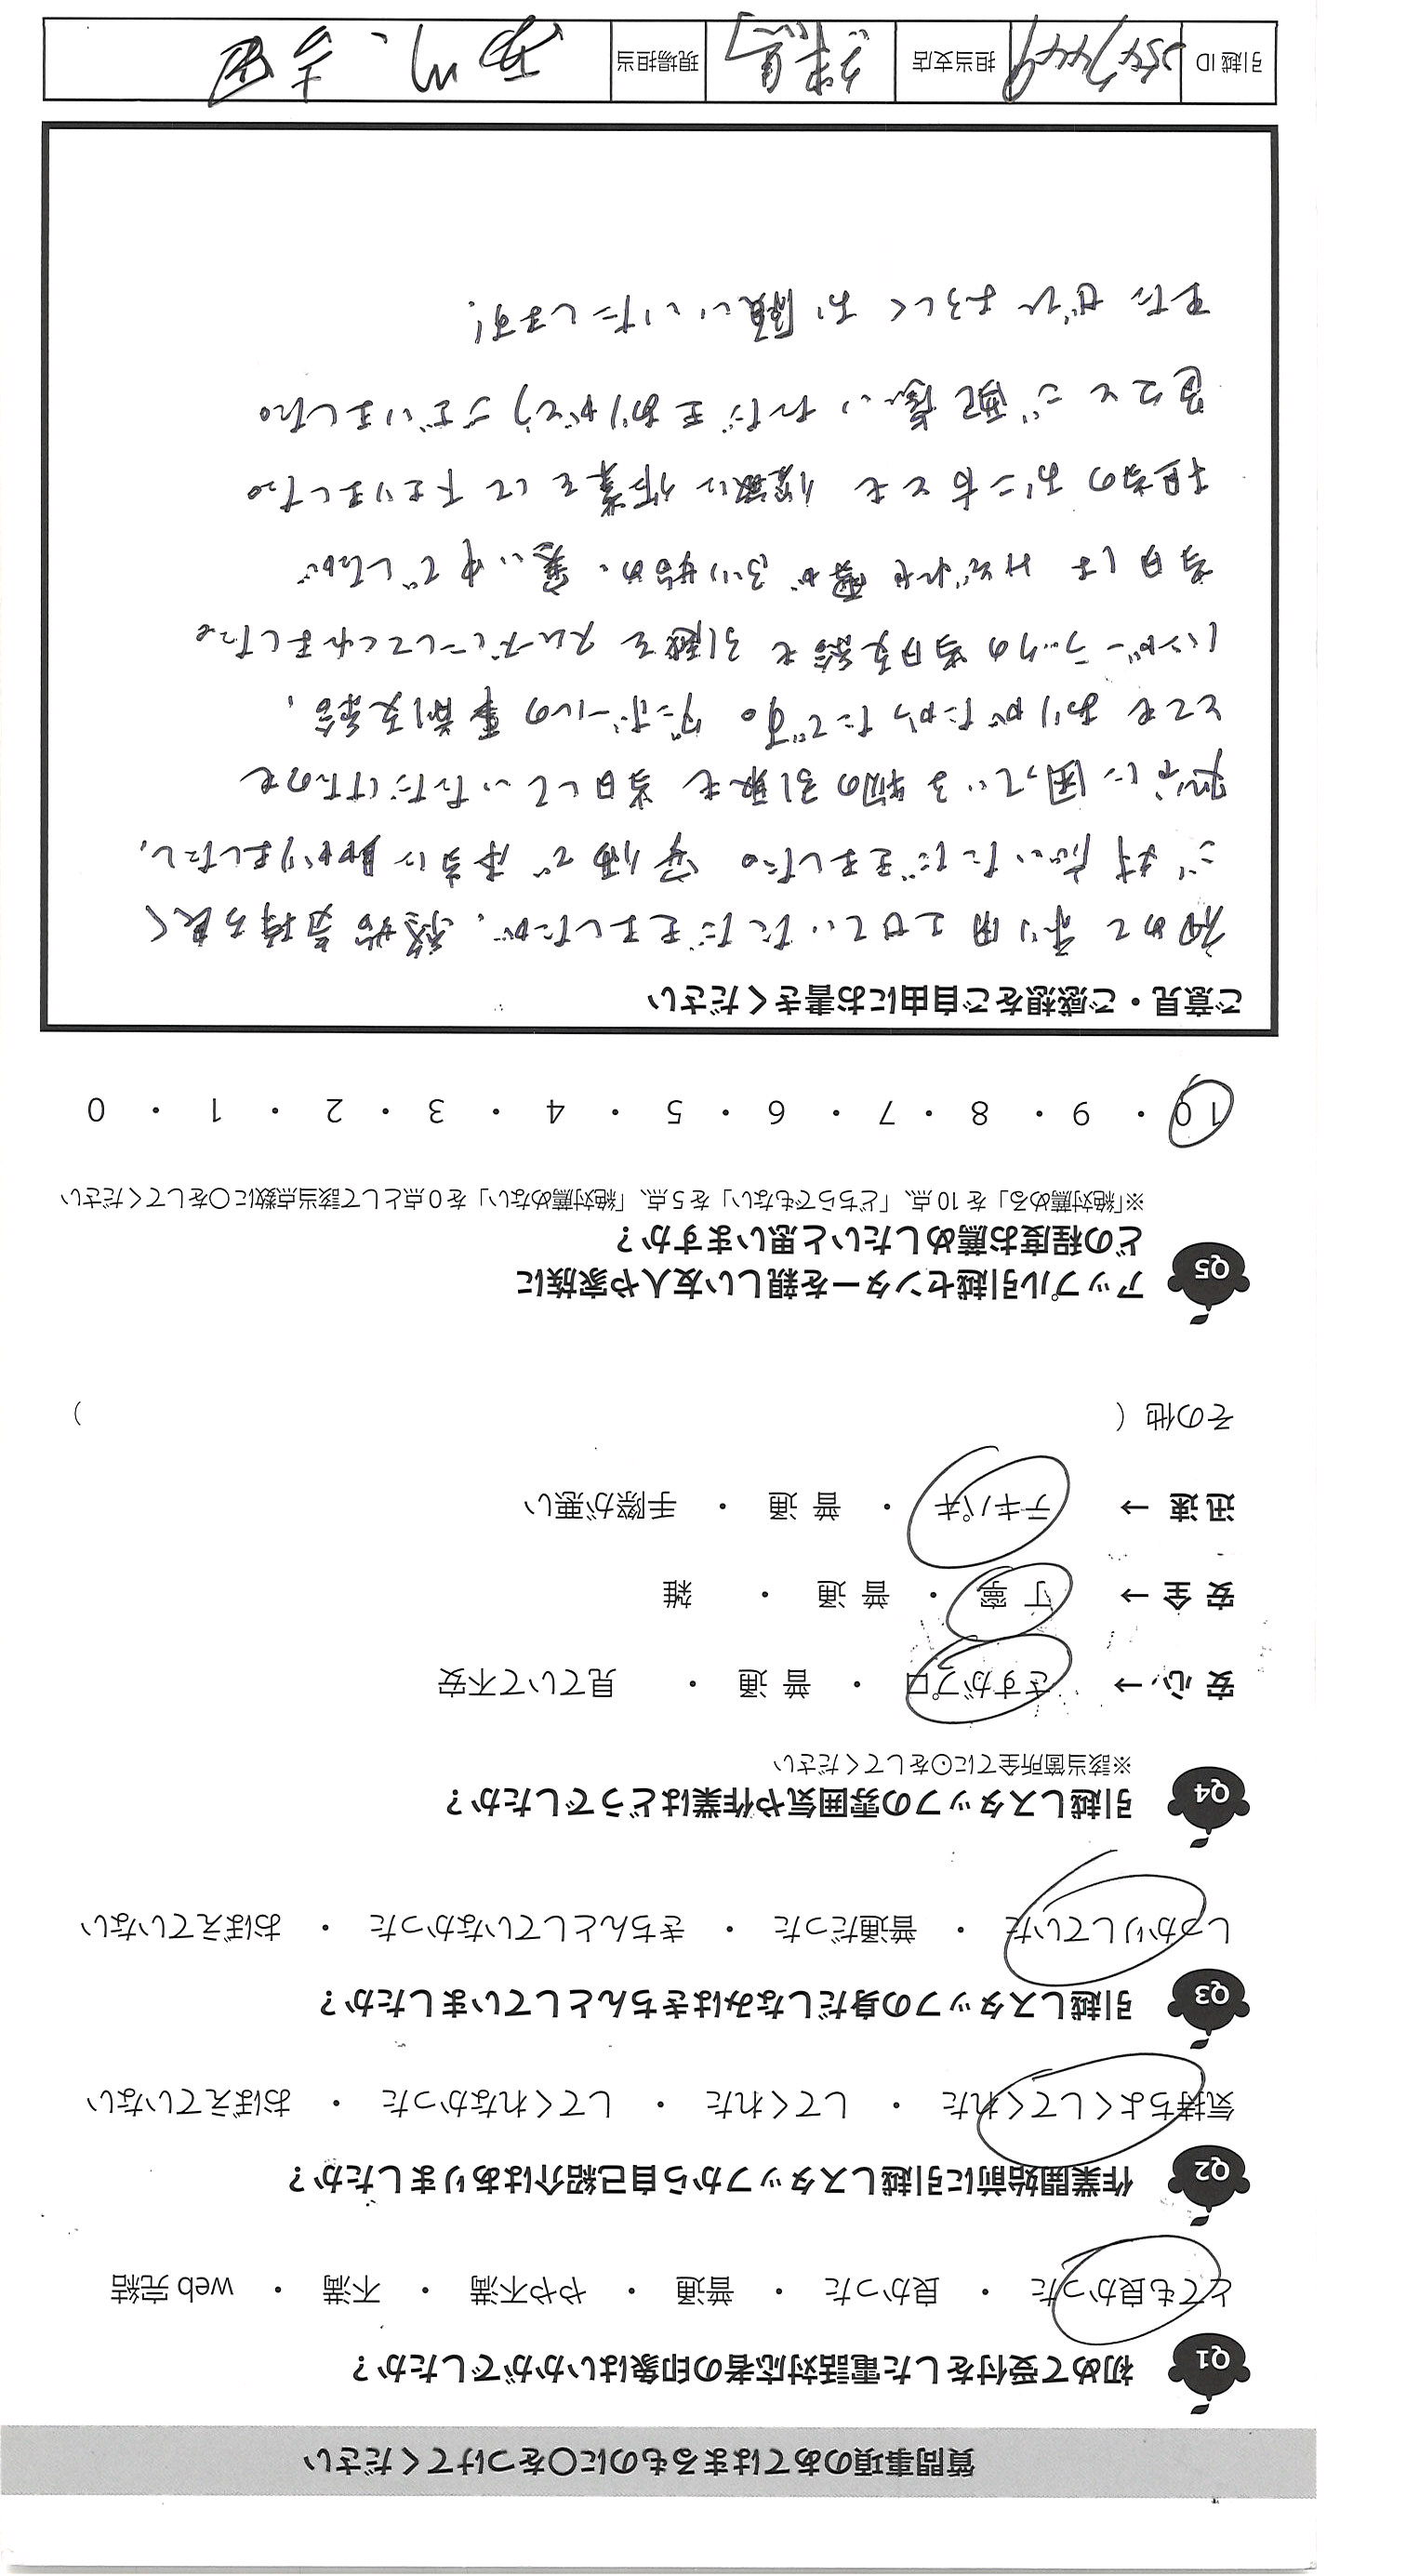 質問事項のあてはまるものに○をつけてください
Q1 初めて受付をした電話対応者の印象はいかがでしたか？
とても良かった ・ 良かった ・ 普通 ・ やや不満 ・ 不満 ・ web 完結
Q2 作業開始前に引越しスタッフから自己紹介はありましたか？
気持ちよくしてくれた ・ してくれた ・ してくれなかった ・ おぼえていない
Q3 引越しスタッフの身だしなみはきちんとしていましたか？
しっかりしていた ・ 普通だった ・ きちんとしていなかった ・ おぼえていない
Q4 引越しスタッフの雰囲気や作業はどうでしたか？
※該当箇所全てに○をしてください
安 心 → さすがプロ ・ 普 通 ・ 見ていて不安
安 全 → 丁 寧 ・ 普 通 ・ 雑
迅 速 → テキパキ ・ 普 通 ・ 手際が悪い
その他（ ）
Q5 アップル引越センターを親しい友人や家族に
どの程度お薦めしたいと思いますか？
※「絶対薦める」を 10 点、「どちらでもない」を 5 点、「絶対薦めない」を 0 点として該当点数に○をしてください
10 ・ 9 ・ 8 ・ 7 ・ 6 ・ 5 ・ 4 ・ 3 ・ 2 ・ 1 ・ 0
ご意見・ご感想をご自由にお書きください
初めて利用させていただきましたが、終始気持ち良く
ご対応いただきました。安価で本当に助かりましたし、
処分に困っている物の引取も当日していただけたのも
とてもありがたかったです。ダンボールの事前支給、
ハンガーラックの当日支給も引越をスムーズにしてくれました。
当日はみぞれも雨がふり始め、寒い中でしたが
担当のお二方とも 作業をして下さりました。
色々とご配慮いただきありがとうございました。
またぜひよろしくお願いいたします！
引越 ID 担当支店 現場担当